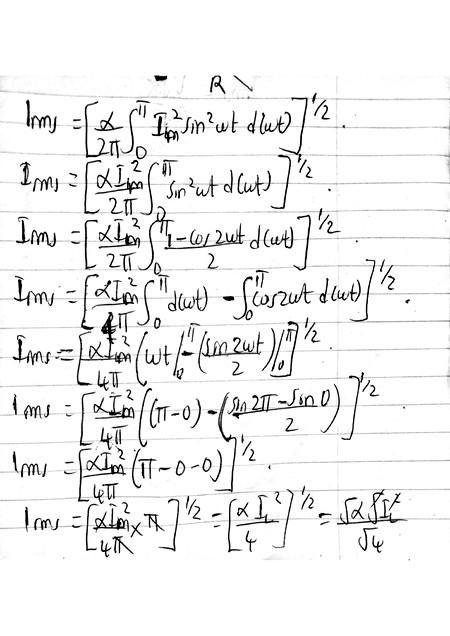 R \
Irms = [α/2π ∫₀^π Im² sin² wt d(wt)]^1/2.
Irms = [αIm²/2π ∫₀^π sin² wt d(wt)]^1/2
Irms = [αIm²/2π ∫₀^π 1-cos2wt/2 d(wt)]^1/2
Irms = [αIm²/4π ∫₀^π d(wt) - ∫₀^π cos2wt d(wt)]^1/2.
Irms = [αIm²/4π (wt|₀^π - (sin2wt/2)|₀^π]^1/2
Irms = [αIm²/4π ((π-0) - (sin2π-sin0/2)]^1/2
Irms = [αIm²/4π (π-0-0)]^1/2.
Irms = [αIm²/4π × π]^1/2 = [αI²/4]^1/2 = √α √I²/√4